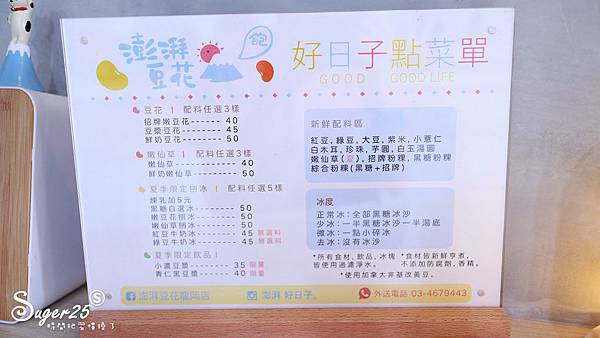 澎湃豆花
飽
好日子點菜單
GOOD GOOD LIFE
豆花 | 配料任選3樣
招牌嫩豆花------- 40
豆漿豆花------- 45
鮮奶豆花------- 50
嫩仙草 | 配料任選3樣
嫩仙草------- 40
鮮奶嫩仙草------- 50
夏季限定刨冰 | 配料任選5樣
煉乳加5元
黑糖自選冰------- 50
嫩豆花刨冰------- 50
嫩仙草刨冰------- 50
紅豆牛奶冰------- 45 無選料
綠豆牛奶冰------- 45 無選料
夏季限定飲品 |
小濃豆漿------- 35 限量
青仁黑豆漿------- 40 限量
新鮮配料區
紅豆, 綠豆, 大豆, 紫米, 小薏仁
白木耳, 珍珠, 芋圓, 白玉湯圓
嫩仙草(夏), 招牌粉粿, 黑糖粉粿
綜合粉粿(黑糖+招牌)
冰度
正常冰:全部黑糖冰沙
少冰:一半黑糖冰沙一半湯底
微冰:一點小碎冰
去冰:沒有冰沙
*所有食材、飲品、冰塊
皆使用過濾淨水。
*食材皆新鮮烹煮,
不添加防腐劑、香精。
*使用加拿大非基改黃豆。
澎湃豆花龍岡店
澎湃 好日子。
外送電話 03-4679443
Suger25
時間把習慣換了